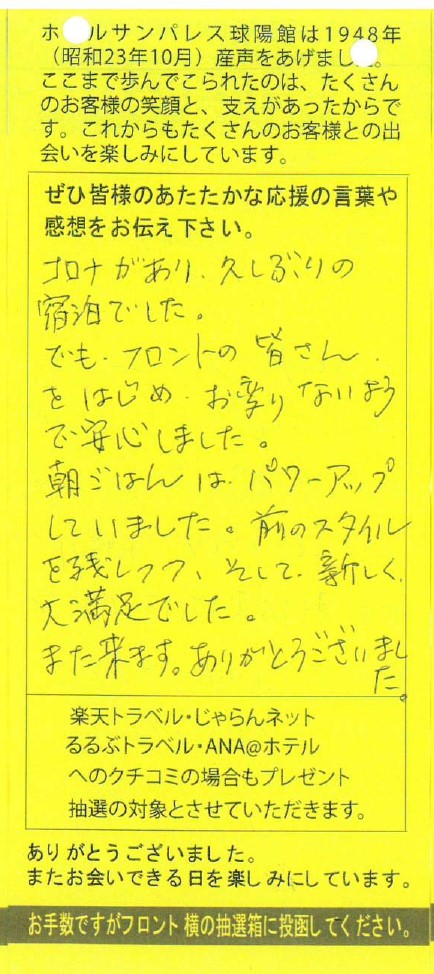 ホ ルサンパレス球陽館は1948年
（昭和23年10月）産声をあげまし 。
ここまで歩んでこられたのは、たくさん
のお客様の笑顔と、支えがあったからで
す。これからもたくさんのお客様との出
会いを楽しみにしています。
ぜひ皆様のあたたかな応援の言葉や
感想をお伝え下さい。
コロナがあり、久しぶりの
宿泊でした。
でも、フロントの皆さん、
をはじめ、お変りないよう
で安心しました。
朝ごはんは、パワーアップ
していました。前のスタイル
を残しつつ、そして、新しく、
大満足でした。
また来ます。ありがとうございまし
た。
楽天トラベル・じゃらんネット
るるぶトラベル・ANA@ホテル
へのクチコミの場合もプレゼント
抽選の対象とさせていただきます。
ありがとうございました。
またお会いできる日を楽しみにしています。
お手数ですがフロント横の抽選箱に投函してください。